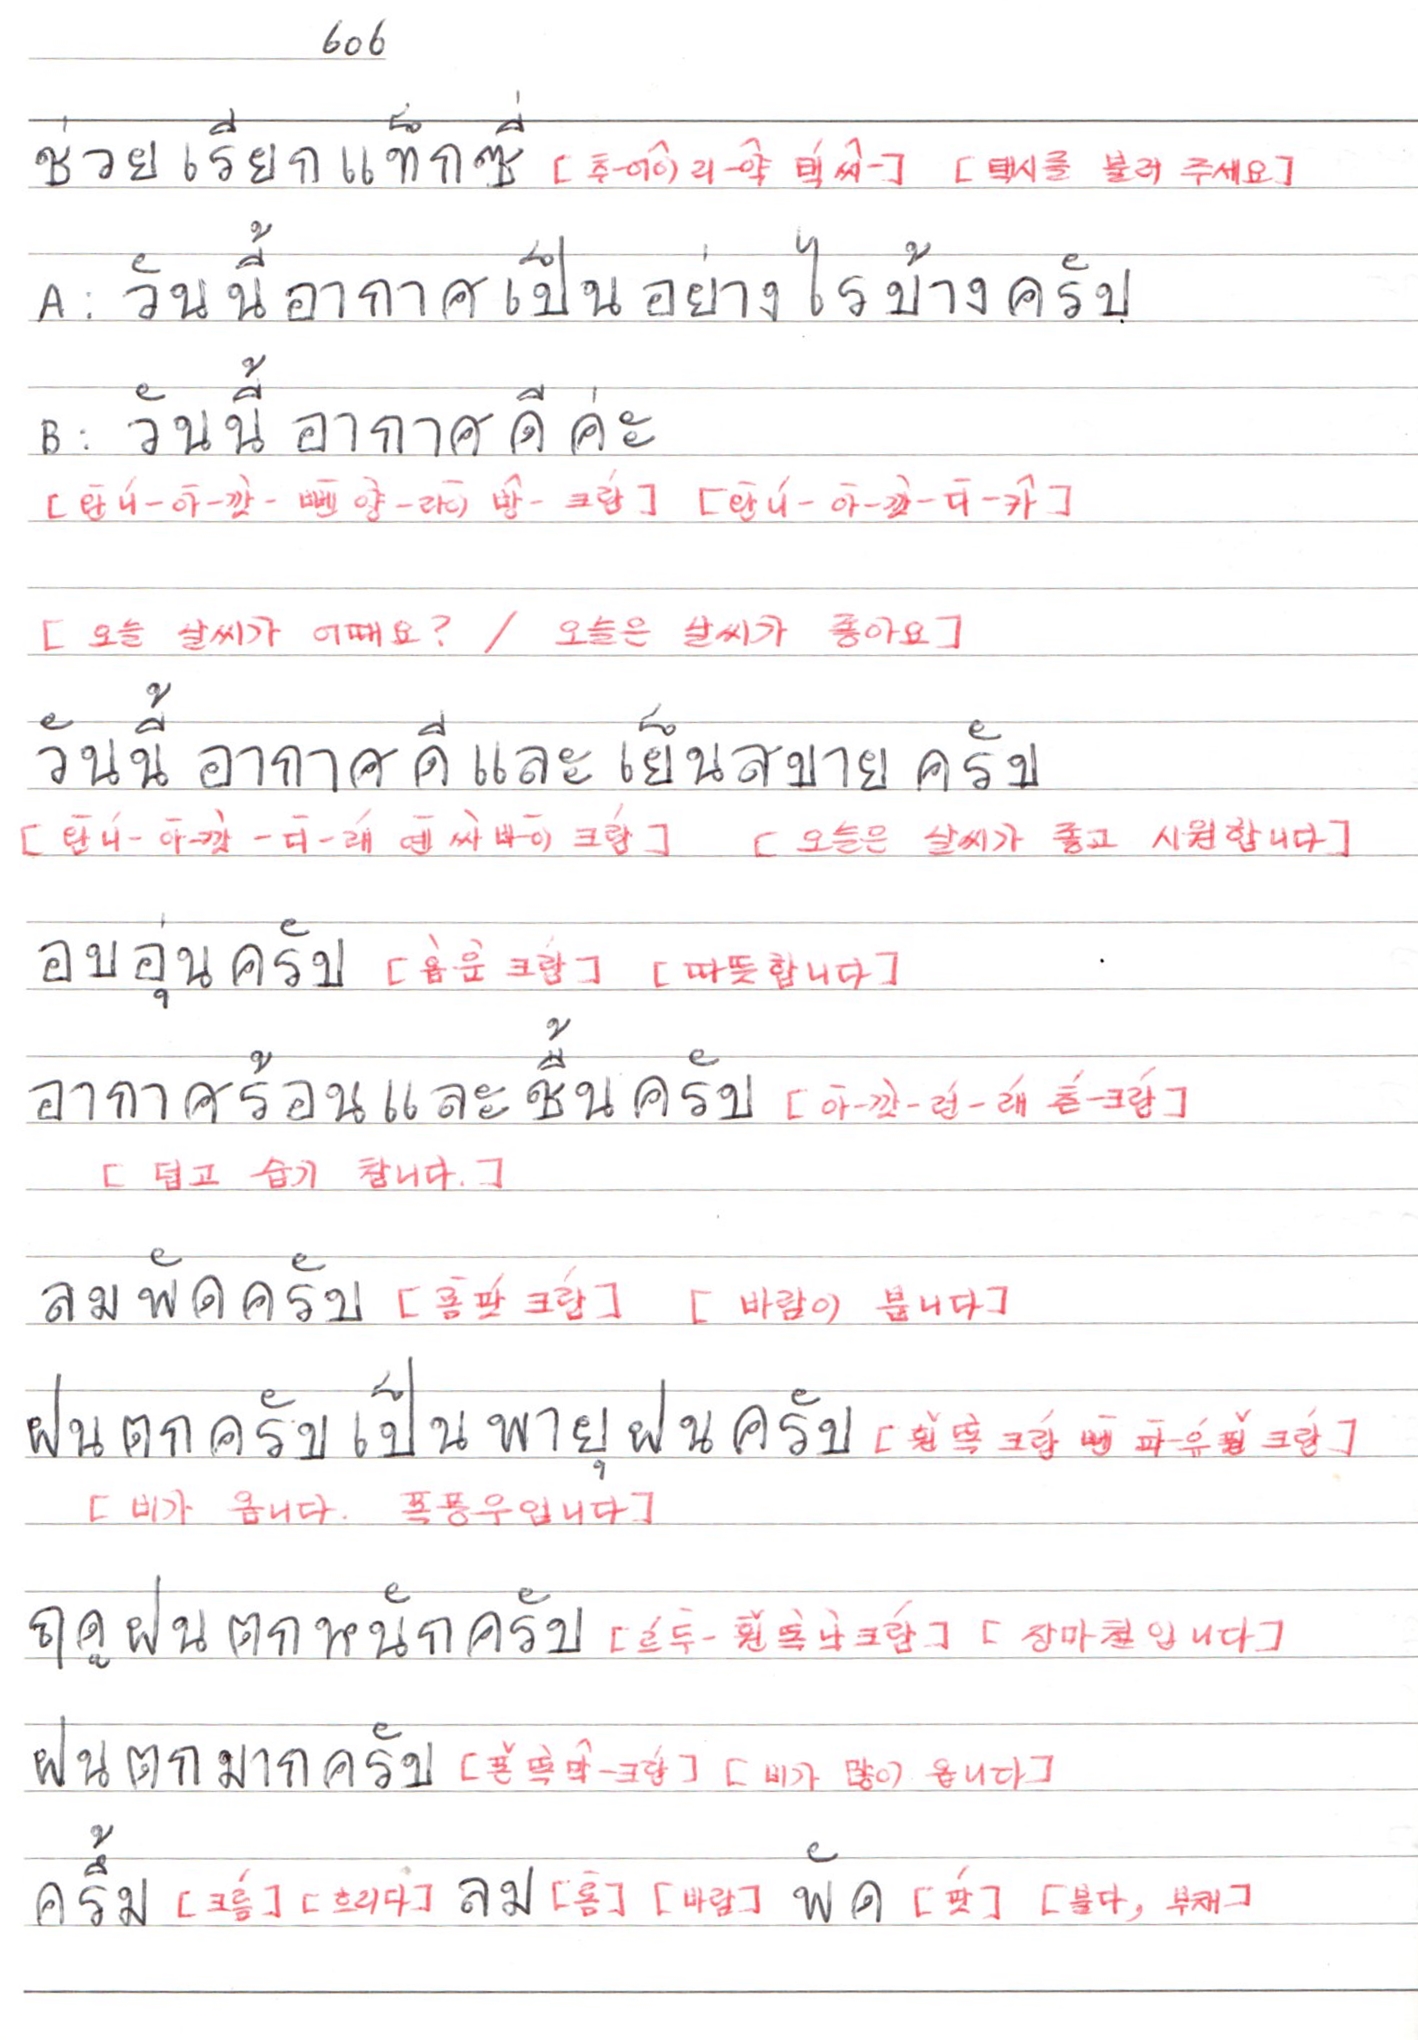 606
ช่วยเรียกแท็กซี่ [추-어이 리-약 택씨-] [택시를 불러 주세요]
A: วันนี้อากาศเป็นอย่างไรบ้างครับ
B: วันนี้ อากาศดีค่ะ
[완니-아-깟- 뻰 양-라이 방- 크랍] [완니-아-깟-디-카]
[오늘 날씨가 어때요? / 오늘은 날씨가 좋아요]
วันนี้ อากาศดีและเย็นสบาย ครับ
[완니-아-깟-디-래 옌 싸바이 크랍] [오늘은 날씨가 좋고 시원합니다]
อบอุ่นครับ [옵운 크랍] [따뜻합니다]
อากาศร้อนและชื้นครับ [아-깟-런-래 츤-크랍]
[덥고 습기 찹니다.]
ลมพัดครับ [롬팟 크랍] [바람이 붑니다]
ฝนตกครับเป็นพายุฝนครับ [훤 똑 크랍 뻰 파-유 훤 크랍]
[비가 옵니다. 폭풍우입니다]
ฤดูฝนตกหนักครับ [르두-훤 똑 낙 크랍] [장마철입니다]
ฝนตกมากครับ [폰 똑 막-크랍] [비가 많이 옵니다]
ครึ้ม [크름] [흐리다] ลม [롬] [바람] พัด [팟] [불다, 부채]